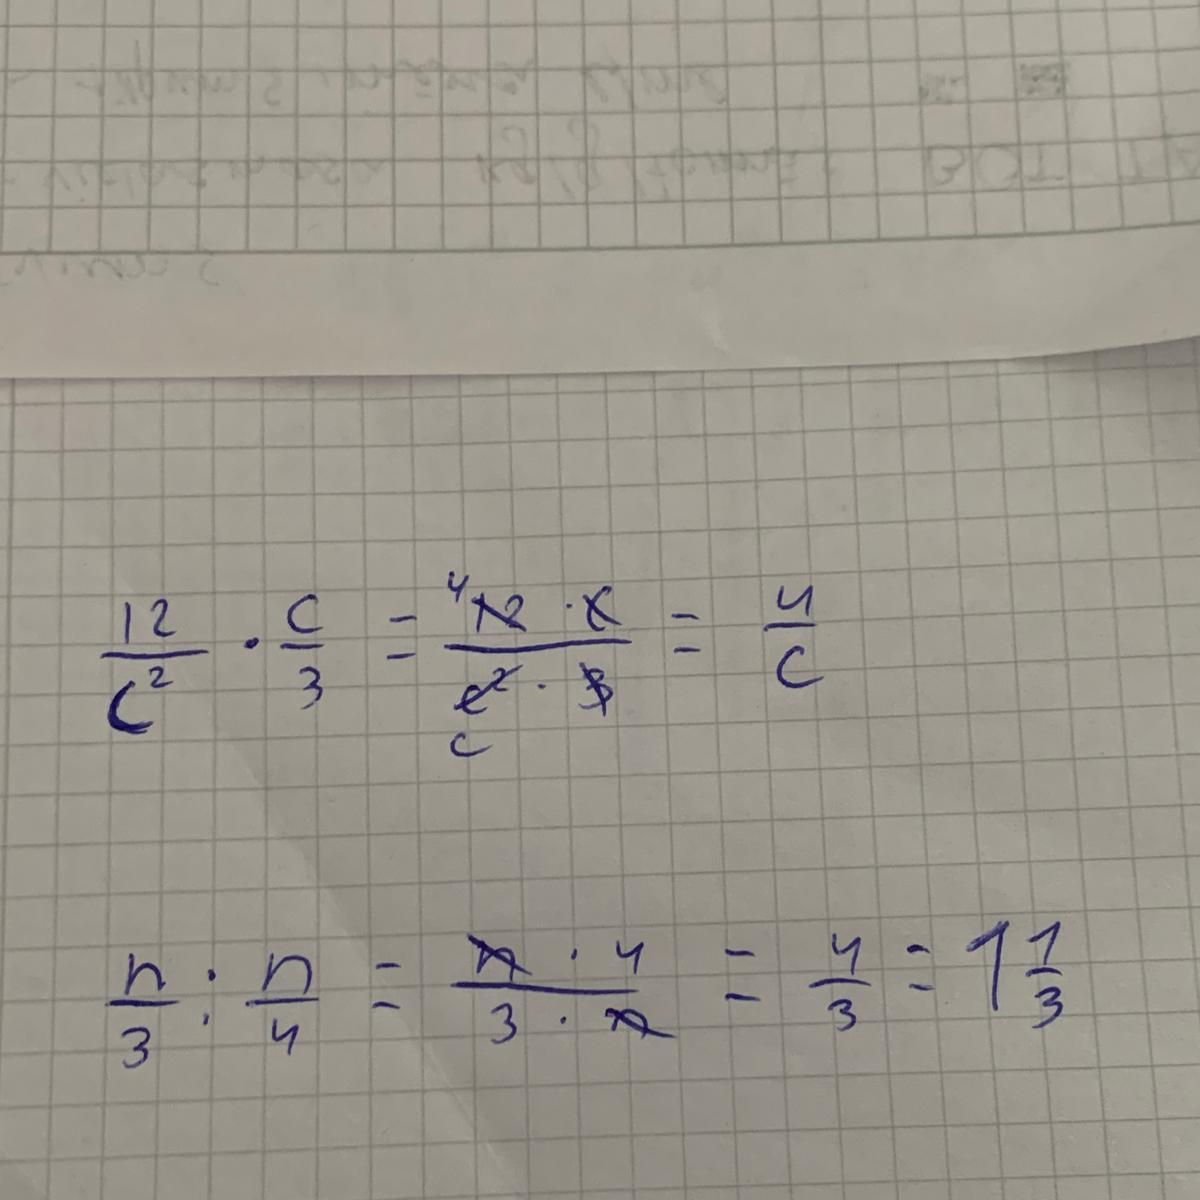 12/c² · c/3 = ⁴12 · c/c² · 3 c = 4/c
n/3 : n/4 = n · 4/3 · n = 4/3 = 1 1/3